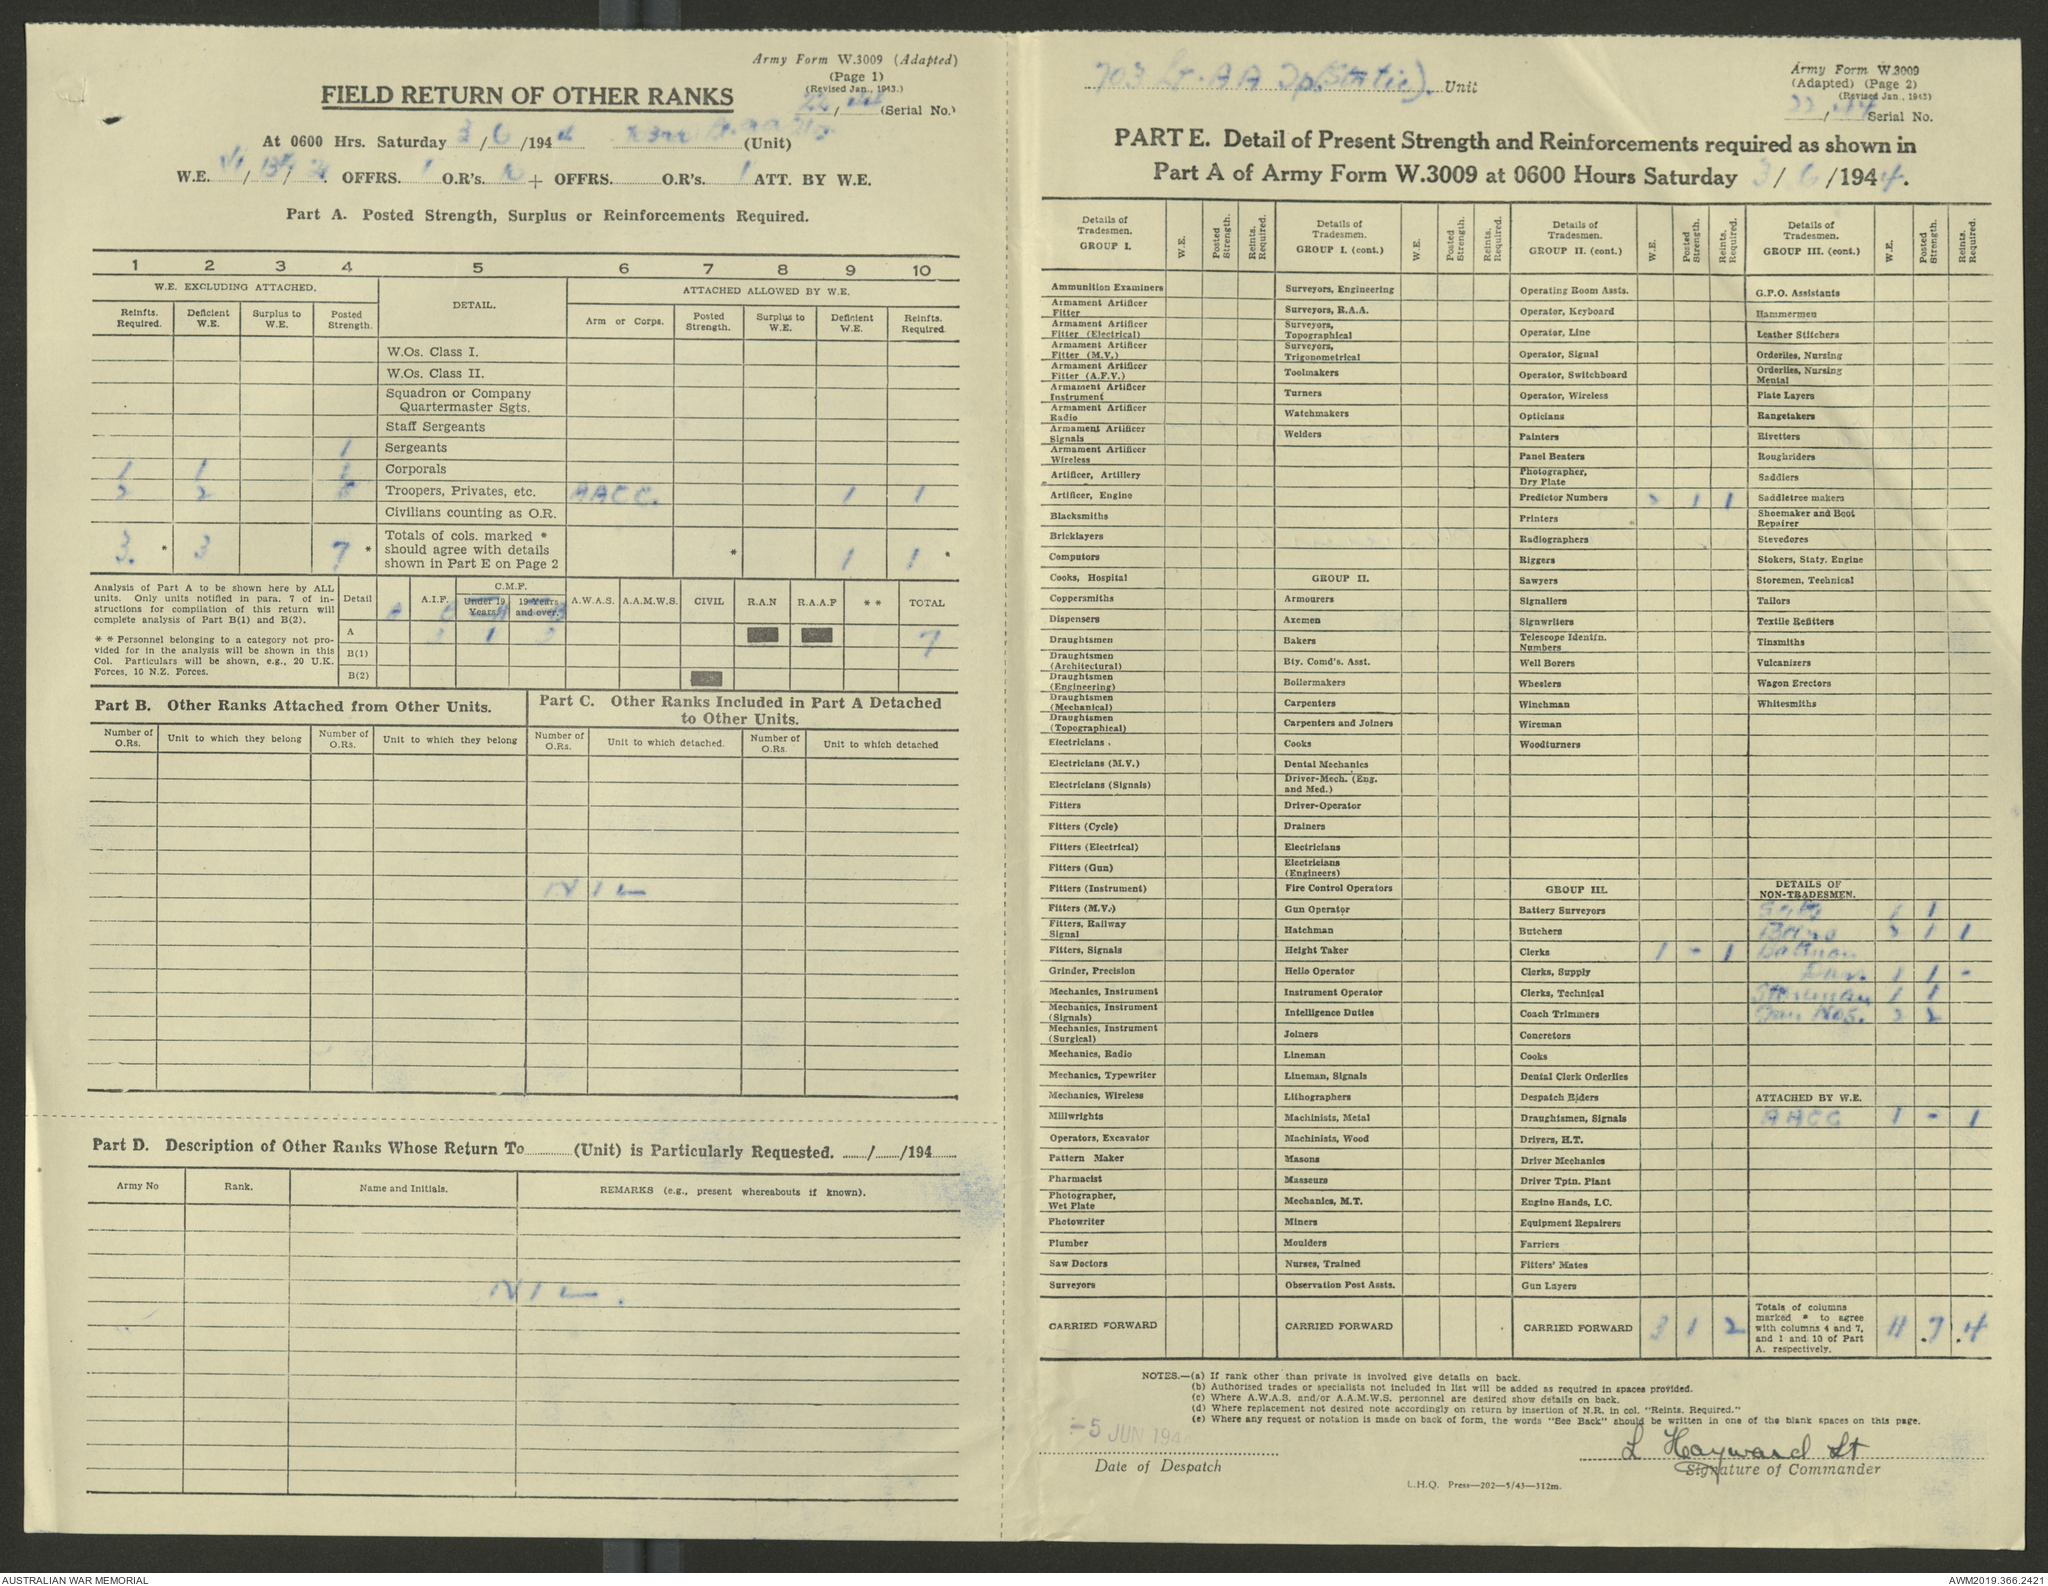 Army Form W.3009 (Adapted)
(Page 1)
(Revised Jan., 1943.)
22/ (Serial No.)
FIELD RETURN OF OTHER RANKS
At 0600 Hrs. Saturday 3/6/1944 (Unit)
W.E. / / OFFRS. 1 O.R's. 10 + OFFRS. O.R's. 1 ATT. BY W.E.
Part A. Posted Strength, Surplus or Reinforcements Required.
1 2 3 4 5 6 7 8 9 10
W.E. EXCLUDING ATTACHED. DETAIL. ATTACHED ALLOWED BY W.E.
Reinfts. Required. Deficient W.E. Surplus to W.E. Posted Strength. Arm or Corps. Posted Strength. Surplus to W.E. Deficient W.E. Reinfts. Required.
W.Os. Class I.
W.Os. Class II.
Squadron or Company
Quartermaster Sgts.
Staff Sergeants
1 Sergeants
1 1 1 Corporals
2 2 5 Troopers, Privates, etc. AACC. 1 1
Civilians counting as O.R.
3. * 3 7 * Totals of cols. marked * should agree with details shown in Part E on Page 2 * 1 1 *
Analysis of Part A to be shown here by ALL
units. Only units notified in para. 7 of in-
structions for compilation of this return will
complete analysis of Part B(1) and B(2).
* * Personnel belonging to a category not pro-
vided for in the analysis will be shown in this
Col. Particulars will be shown, e.g., 20 U.K.
Forces, 10 N.Z. Forces.
Detail A.I.F. C.M.F. Under 19 Years. 19 Years and over. A.W.A.S. A.A.M.W.S. CIVIL R.A.N R.A.A.F * * TOTAL
A 3 1 3 7
B(1)
B(2)
Part B. Other Ranks Attached from Other Units.
Number of O.Rs. Unit to which they belong Number of O.Rs. Unit to which they belong
Part C. Other Ranks Included in Part A Detached
to Other Units.
Number of O.Rs. Unit to which detached. Number of O.Rs. Unit to which detached
NIL
Part D. Description of Other Ranks Whose Return To (Unit) is Particularly Requested. / /194
Army No Rank. Name and Initials. REMARKS (e.g., present whereabouts if known).
NIL.
703 Lt. AA Tp (Static). Unit
Army Form W.3009
(Adapted) (Page 2)
(Revised Jan., 1943)
22/44 Serial No.
PART E. Detail of Present Strength and Reinforcements required as shown in
Part A of Army Form W.3009 at 0600 Hours Saturday 3/6/1944.
Details of Tradesmen. GROUP I. W.E. Posted Strength. Reints. Required.
Ammunition Examiners
Armament Artificer Fitter
Armament Artificer Fitter (Electrical)
Armament Artificer Fitter (M.V.)
Armament Artificer Fitter (A.F.V.)
Armament Artificer Instrument
Armament Artificer Radio
Armament Artificer Signals
Armament Artificer Wireless
Artificer, Artillery
Artificer, Engine
Blacksmiths
Bricklayers
Computors
Cooks, Hospital
Coppersmiths
Dispensers
Draughtsmen
Draughtsmen (Architectural)
Draughtsmen (Engineering)
Draughtsmen (Mechanical)
Draughtsmen (Topographical)
Electricians .
Electricians (M.V.)
Electricians (Signals)
Fitters
Fitters (Cycle)
Fitters (Electrical)
Fitters (Gun)
Fitters (Instrument)
Fitters (M.V.)
Fitters, Railway Signal
Fitters, Signals
Grinder, Precision
Mechanics, Instrument
Mechanics, Instrument (Signals)
Mechanics, Instrument (Surgical)
Mechanics, Radio
Mechanics, Typewriter
Mechanics, Wireless
Millwrights
Operators, Excavator
Pattern Maker
Pharmacist
Photographer, Wet Plate
Photowriter
Plumber
Saw Doctors
Surveyors
CARRIED FORWARD
Details of Tradesmen. GROUP I. (cont.) W.E. Posted Strength. Reints. Required.
Surveyors, Engineering
Surveyors, R.A.A.
Surveyors, Topographical
Surveyors, Trigonometrical
Toolmakers
Turners
Watchmakers
Welders
GROUP II.
Armourers
Axemen
Bakers
Bty. Comd's. Asst.
Boilermakers
Carpenters
Carpenters and Joiners
Cooks
Dental Mechanics
Driver-Mech. (Eng. and Med.)
Driver-Operator
Drainers
Electricians
Electricians (Engineers)
Fire Control Operators
Gun Operator
Hatchman
Height Taker
Hello Operator
Instrument Operator
Intelligence Duties
Joiners
Lineman
Lineman, Signals
Lithographers
Machinists, Metal
Machinists, Wood
Masons
Masseurs
Mechanics, M.T.
Miners
Moulders
Nurses, Trained
Observation Post Assts.
CARRIED FORWARD
Details of Tradesmen. GROUP II. (cont.) W.E. Posted Strength. Reints. Required.
Operating Room Assts.
Operator, Keyboard
Operator, Line
Operator, Signal
Operator, Switchboard
Operator, Wireless
Opticians
Painters
Panel Beaters
Photographer, Dry Plate
Predictor Numbers 2 1 1
Printers
Radiographers
Riggers
Sawyers
Signallers
Signwriters
Telescope Identfn. Numbers
Well Borers
Wheelers
Winchman
Wireman
Woodturners
GROUP III.
Battery Surveyors
Butchers
Clerks 1 - 1
Clerks, Supply
Clerks, Technical
Coach Trimmers
Concretors
Cooks
Dental Clerk Orderlies
Despatch Riders
Draughtsmen, Signals
Drivers, H.T.
Driver Mechanics
Driver Tptn. Plant
Engine Hands, I.C.
Equipment Repairers
Farriers
Fitters' Mates
Gun Layers
CARRIED FORWARD 3 1 2
Details of Tradesmen. GROUP III. (cont.) W.E. Posted Strength. Reints. Required.
G.P.O. Assistants
Hammermen
Leather Stitchers
Orderlies, Nursing
Orderlies, Nursing Mental
Plate Layers
Rangetakers
Rivetters
Roughriders
Saddlers
Saddletree makers
Shoemaker and Boot Repairer
Stevedores
Stokers, Staty. Engine
Storemen, Technical
Tailors
Textile Refitters
Tinsmiths
Vulcanizers
Wagon Erectors
Whitesmiths
DETAILS OF
NON-TRADESMEN.
Sgts 1 1
Bdrs 2 1 1
Batman
1 1 -
Storeman 1 1
Gun Nos. 3
ATTACHED BY W.E.
AACC 1 - 1
Totals of columns marked * to agree with columns 4 and 7, and 1 and 10 of Part A. respectively. 11 .7 .4
NOTES.—(a) If rank other than private is involved give details on back.
(b) Authorised trades or specialists not included in list will be added as required in spaces provided.
(c) Where A.W.A.S. and/or A.A.M.W.S. personnel are desired show details on back.
(d) Where replacement not desired note accordingly on return by insertion of N.R. in col. "Reints. Required."
(e) Where any request or notation is made on back of form, the words "See Back" should be written in one of the blank spaces on this page.
-5 JUN 194
Date of Despatch
L Hayward Lt
Signature of Commander
L.H.Q. Press—202—5/43—312m.
AUSTRALIAN WAR MEMORIAL
AWM2019.366.2421